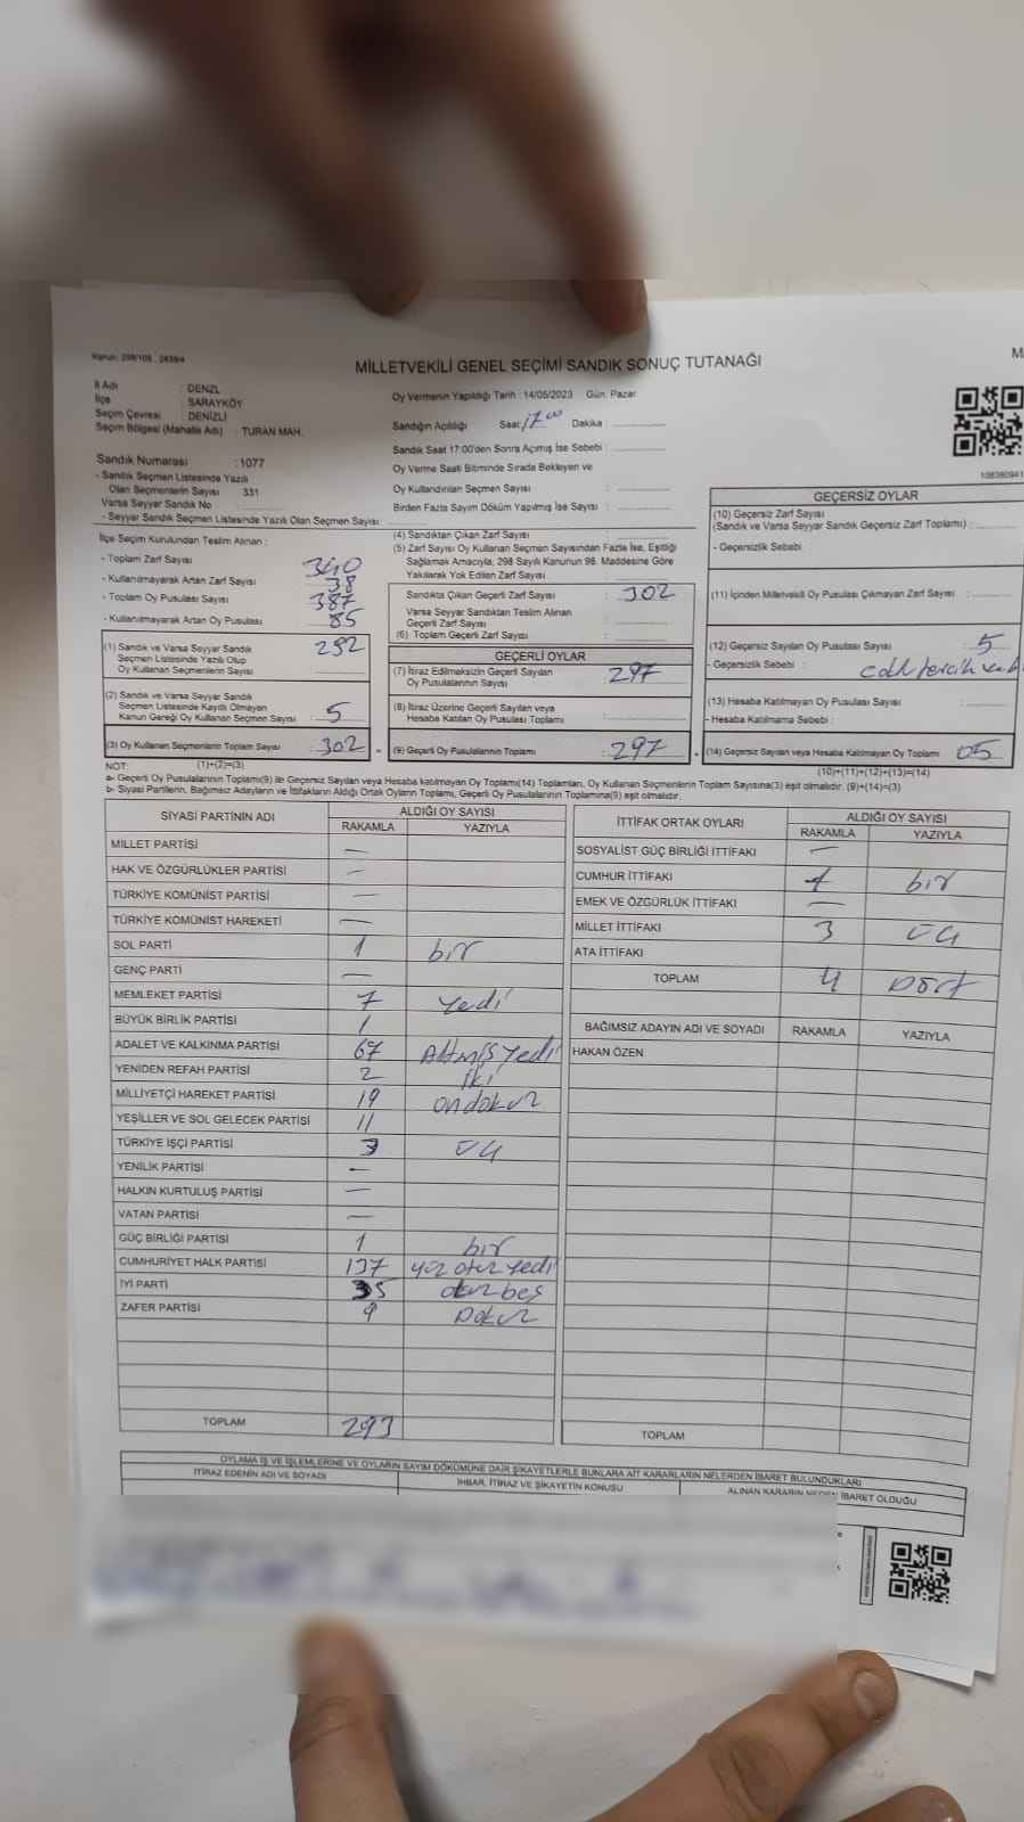 Kanun: 298/105 , 2839/4
MİLLETVEKİLİ GENEL SEÇİMİ SANDIK SONUÇ TUTANAĞI
İl Adı : DENZLİ
İlçe : SARAYKÖY
Seçim Çevresi : DENİZLİ
Seçim Bölgesi (Mahalle Adı) : TURAN MAH.
Sandık Numarası : 1077
- Sandık Seçmen Listesinde Yazılı
Olan Seçmenlerin Sayısı : 331
Varsa Seyyar Sandık No
- Seyyar Sandık Seçmen Listesinde Yazılı Olan Seçmen Sayısı:
Oy Vermenin Yapıldığı Tarih : 14/05/2023 Gün: Pazar
Sandığın Açıldığı Saat: 17 00 Dakika :
Sandık Saat 17:00'den Sonra Açılmış İse Sebebi :
Oy Verme Saati Bitiminde Sırada Bekleyen ve
Oy Kullandırılan Seçmen Sayısı :
Birden Fazla Sayım Döküm Yapılmış İse Sayısı :
İlçe Seçim Kurulundan Teslim Alınan :
- Toplam Zarf Sayısı 340
- Kullanılmayarak Artan Zarf Sayısı 38
- Toplam Oy Pusulası Sayısı 387
- Kullanılmayarak Artan Oy Pusulası 85
(1) Sandık ve Varsa Seyyar Sandık
Seçmen Listesinde Yazılı Olup
Oy Kullanan Seçmenlerin Sayısı : 292
(2) Sandık ve Varsa Seyyar Sandık
Seçmen Listesinde Kayıtlı Olmayan
Kanun Gereği Oy Kullanan Seçmen Sayısı : 5
(3) Oy Kullanan Seçmenlerin Toplam Sayısı : 302
(4) Sandıktan Çıkan Zarf Sayısı :
(5) Zarf Sayısı Oy Kullanan Seçmen Sayısından Fazla İse, Eşitliği
Sağlamak Amacıyla, 298 Sayılı Kanunun 98. Maddesine Göre
Yakılarak Yok Edilen Zarf Sayısı :
Sandıkta Çıkan Geçerli Zarf Sayısı : 302
Varsa Seyyar Sandıktan Teslim Alınan
Geçerli Zarf Sayısı :
(6) Toplam Geçerli Zarf Sayısı :
GEÇERLİ OYLAR
(7) İtiraz Edilmeksizin Geçerli Sayılan
Oy Pusulalarının Sayısı : 297
(8) İtiraz Üzerine Geçerli Sayılan veya
Hesaba Katılan Oy Pusulası Toplamı :
(9) Geçerli Oy Pusulalarının Toplamı : 297
GEÇERSİZ OYLAR
(10) Geçersiz Zarf Sayısı
(Sandık ve Varsa Seyyar Sandık Geçersiz Zarf Toplamı) :
- Geçersizlik Sebebi
(11) İçinden Milletvekili Oy Pusulası Çıkmayan Zarf Sayısı :
(12) Geçersiz Sayılan Oy Pusulası Sayısı : 5
- Geçersizlik Sebebi : tercih
(13) Hesaba Katılmayan Oy Pusulası Sayısı :
- Hesaba Katılmama Sebebi :
(14) Geçersiz Sayılan veya Hesaba Katılmayan Oy Toplamı : 05
NOT: (1)+(2)=(3)
(10)+(11)+(12)+(13)=(14)
a- Geçerli Oy Pusulalarının Toplamı(9) ile Geçersiz Sayılan veya Hesaba katılmayan Oy Toplamı(14) Toplamları, Oy Kullanan Seçmenlerin Toplam Sayısına(3) eşit olmalıdır. (9)+(14)=(3)
b- Siyasi Partilerin, Bağımsız Adayların ve İttifakların Aldığı Ortak Oyların Toplamı, Geçerli Oy Pusulalarının Toplamına(9) eşit olmalıdır.
SİYASİ PARTİNİN ADI ALDIĞI OY SAYISI
RAKAMLA YAZIYLA
MİLLET PARTİSİ —
HAK VE ÖZGÜRLÜKLER PARTİSİ —
TÜRKİYE KOMÜNİST PARTİSİ —
TÜRKİYE KOMÜNİST HAREKETİ —
SOL PARTİ 1 bir
GENÇ PARTİ —
MEMLEKET PARTİSİ 7 Yedi
BÜYÜK BİRLİK PARTİSİ 1
ADALET VE KALKINMA PARTİSİ 67 Altmış yedi
YENİDEN REFAH PARTİSİ 2 İki
MİLLİYETÇİ HAREKET PARTİSİ 19 ondokuz
YEŞİLLER VE SOL GELECEK PARTİSİ 11
TÜRKİYE İŞÇİ PARTİSİ 3 üç
YENİLİK PARTİSİ —
HALKIN KURTULUŞ PARTİSİ —
VATAN PARTİSİ —
GÜÇ BİRLİĞİ PARTİSİ 1 bir
CUMHURİYET HALK PARTİSİ 137 yüz otuz yedi
İYİ PARTİ 35 otuz beş
ZAFER PARTİSİ 9 Dokuz
TOPLAM 293
İTTİFAK ORTAK OYLARI ALDIĞI OY SAYISI
RAKAMLA YAZIYLA
SOSYALİST GÜÇ BİRLİĞİ İTTİFAKI —
CUMHUR İTTİFAKI 1 bir
EMEK VE ÖZGÜRLÜK İTTİFAKI —
MİLLET İTTİFAKI 3 üç
ATA İTTİFAKI
TOPLAM 4 Dört
BAĞIMSIZ ADAYIN ADI VE SOYADI RAKAMLA YAZIYLA
HAKAN ÖZEN
TOPLAM
OYLAMA İŞ VE İŞLEMLERİNE VE OYLARIN SAYIM DÖKÜMÜNE DAİR ŞİKAYETLERLE BUNLARA AİT KARARLARIN NELERDEN İBARET BULUNDUKLARI
İTİRAZ EDENİN ADI VE SOYADI İHBAR, İTİRAZ VE ŞİKAYETİN KONUSU ALINAN KARARIN NEDEN İBARET OLDUĞU